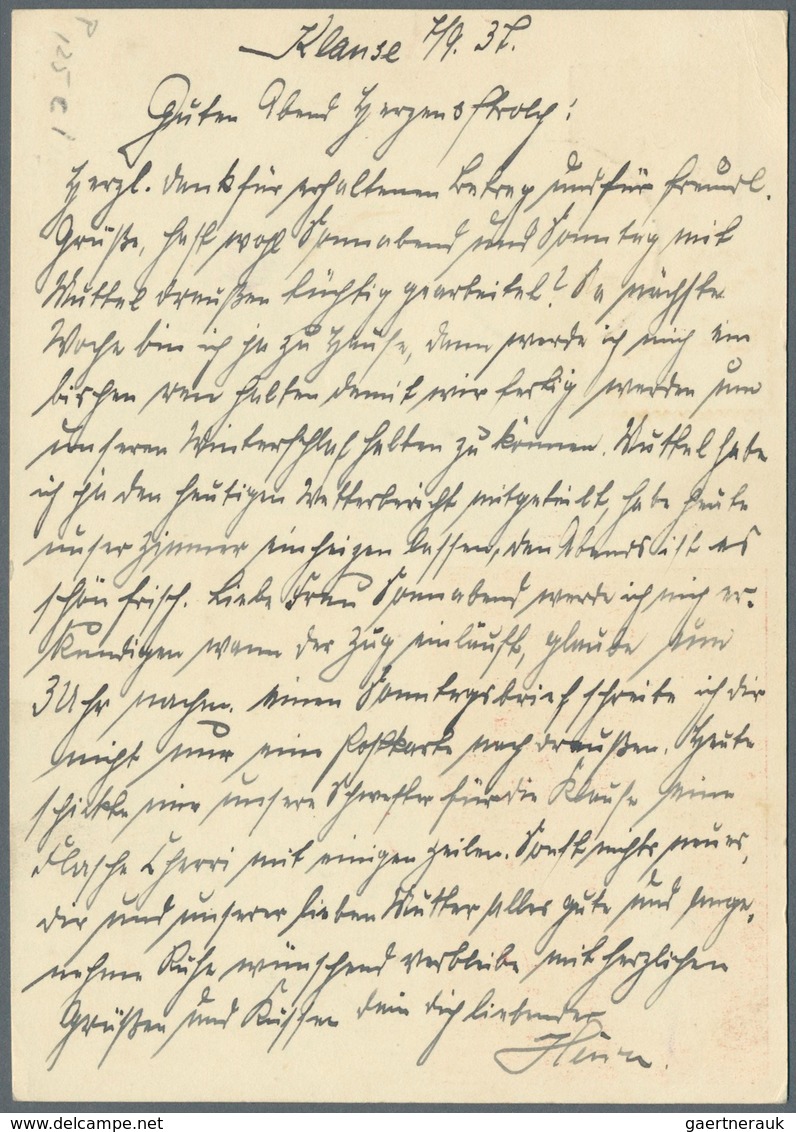 P 125 e/
Klause 7/9. 37.
Guten Abend Herzensstrolch!
Herzl. Dank für erhaltenen Betrag und für freundl.
Grüße, hast wohl Sonnabend und Sonntag mit
Muttel draußen tüchtig gearbeitet? Na nächste
Woche bin ich ja zu Hause, dann werde ich mich ein
bischen ran halten damit wir fertig werden um
unseren Winterschlaf halten zu können. Muttel habe
ich ja den heutigen Wetterbericht mitgeteilt, habe heute
unser Zimmer einheizen lassen, den Abends ist es
schön frisch. Liebe Frau Sonnabend werde ich mich er-
kundigen wann der Zug einläuft, glaube um
3 Uhr nachm. einen Sonntagsbrief schreibe ich dir
nicht nur eine Postkarte nach draußen. Heute
schickte mir unsere Schwester für die Klause eine
Flasche Cherri mit einigen Zeilen. Sonst nichts neues,
dir und unserer lieben Mutter alles gute und ange-
nehme Ruhe wünschend verbleibe mit herzlichen
Grüßen und Küssen dein dich liebender
gaertnerauk